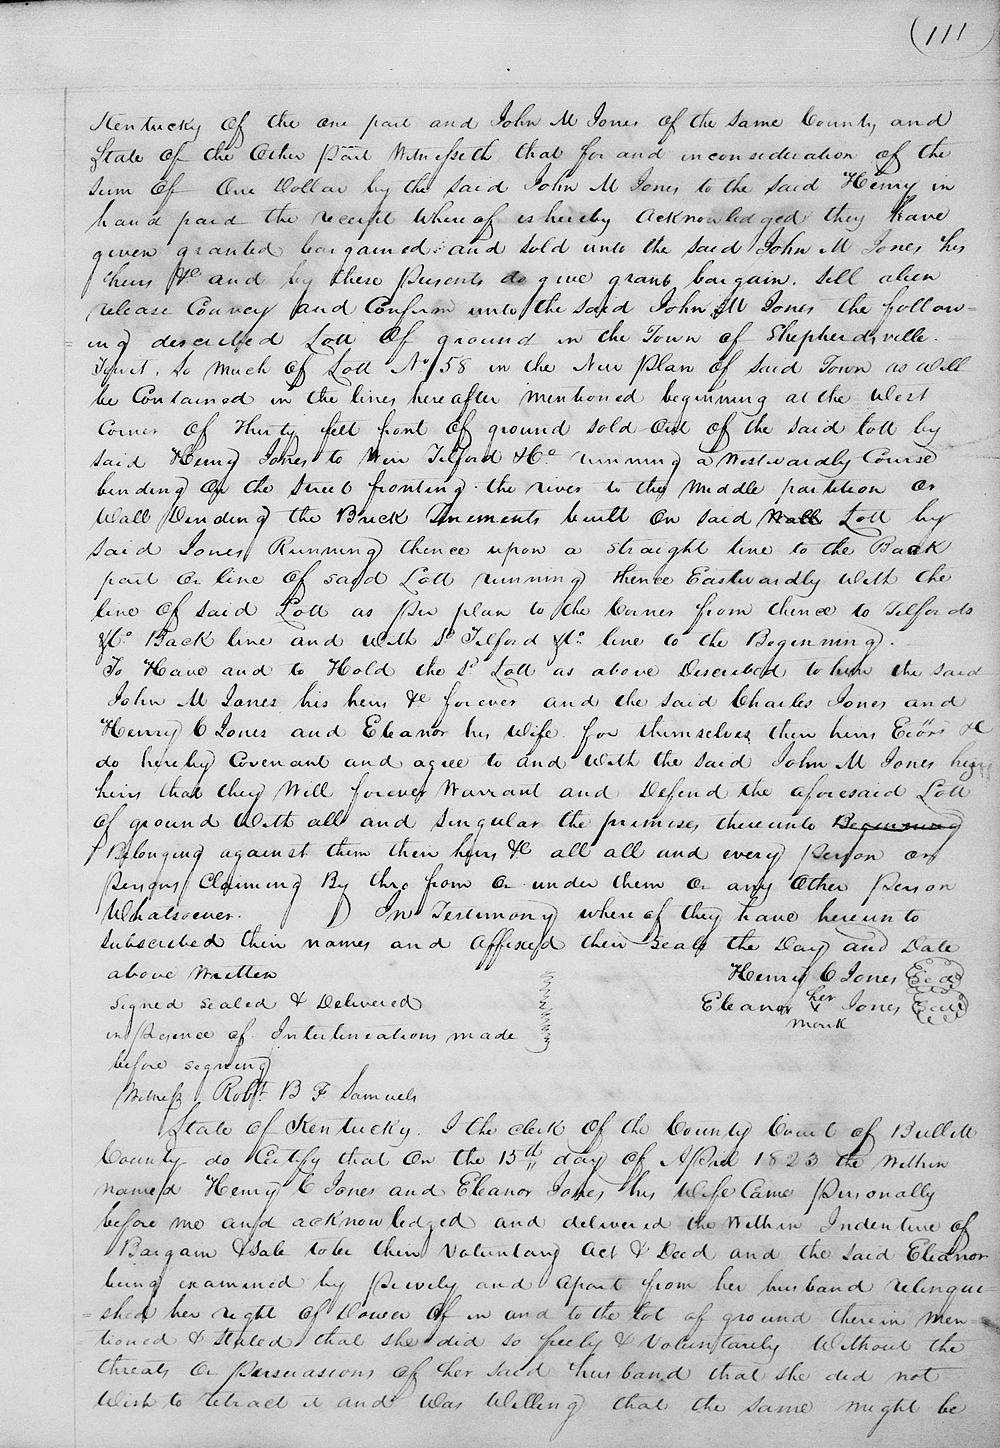 (111
Kentucky Of the One part and John M Jones Of the Same County and
State Of the Other Part Witnesseth that for and in consideration of the
Sum Of One Dollar by the said John M Jones to the said Henry in
hand paid the receipt Whereof is hereby Acknowledged they have
given granted bargained and sold unto the said John M Jones his
heirs &c and by these Presents do give grant bargain. Sell alien
release Convey and Confirm unto the said John M Jones the follow-
=ing described Lott Of ground in the Town of Shepherdsville.
Towit. So Much Of Lott No 58 in the New Plan Of said Town as Will
be Contained in the lines hereafter mentioned beginning at the West
Corner Of Thirty feet front Of ground sold Out of the said lott by
said Henry Jones to Wm Tilford & Co running a Westwardly Course
binding On the Street fronting the river to the Middle partition Or
Wall Dividing the Brick Tenements built On said Wall Lott by
said Jones Running thence upon a straight line to the Back
part Or line Of said Lott running thence Eastwardly With the
line Of said Lott as Per plan to the Corner from thence to Tilfords
&Co Back line and With Sd Tilford &Co line to the Beginning.
To Have and to Hold the Sd Lott as above Described to him the said
John M Jones his heirs &c forever and the said Charles Jones and
Henry C Jones and Eleanor his Wife for themselves their heirs Exors &c
do hereby Covenant and agree to and With the said John M Jones his
heirs that they Will forever Warrant and Defend the aforesaid Lott
Of ground With all and Singular the premises thereunto Beginning
Belonging against them their heirs &c all all and every Person or
Persons Claiming By thro from Or under them Or any Other Person
Whatsoever. In Testimony where of they have hereunto
Subscribed their names and Affixed their Seals the Day and Date
above Written Henry C Jones Seal
Signed sealed & Delivered Eleanor her x mark Jones Seal
in Presence of Interlineations made
before signing
Witness Robt. B F Samuels
State of Kentucky. I the clerk Of the County Court of Bullitt
County do Certify that On the 15th day Of April 1823 the Within
named Henry C Jones and Eleanor Jones his Wife Came Personally
before me and acknowledged and delivered the Within Indenture of
Bargain & Sale to be their Voluntary Act & Deed and the said Eleanor
being examined by Privily and Apart from her husband relinqui-
=shed her right Of Dower Of in and to the lot of ground therein Men-
tioned & stated that she did so freely & Voluntarily Without the
threats Or Persuasions Of her said husband that she did not
Wish to retract it and Was Willing that the same might be